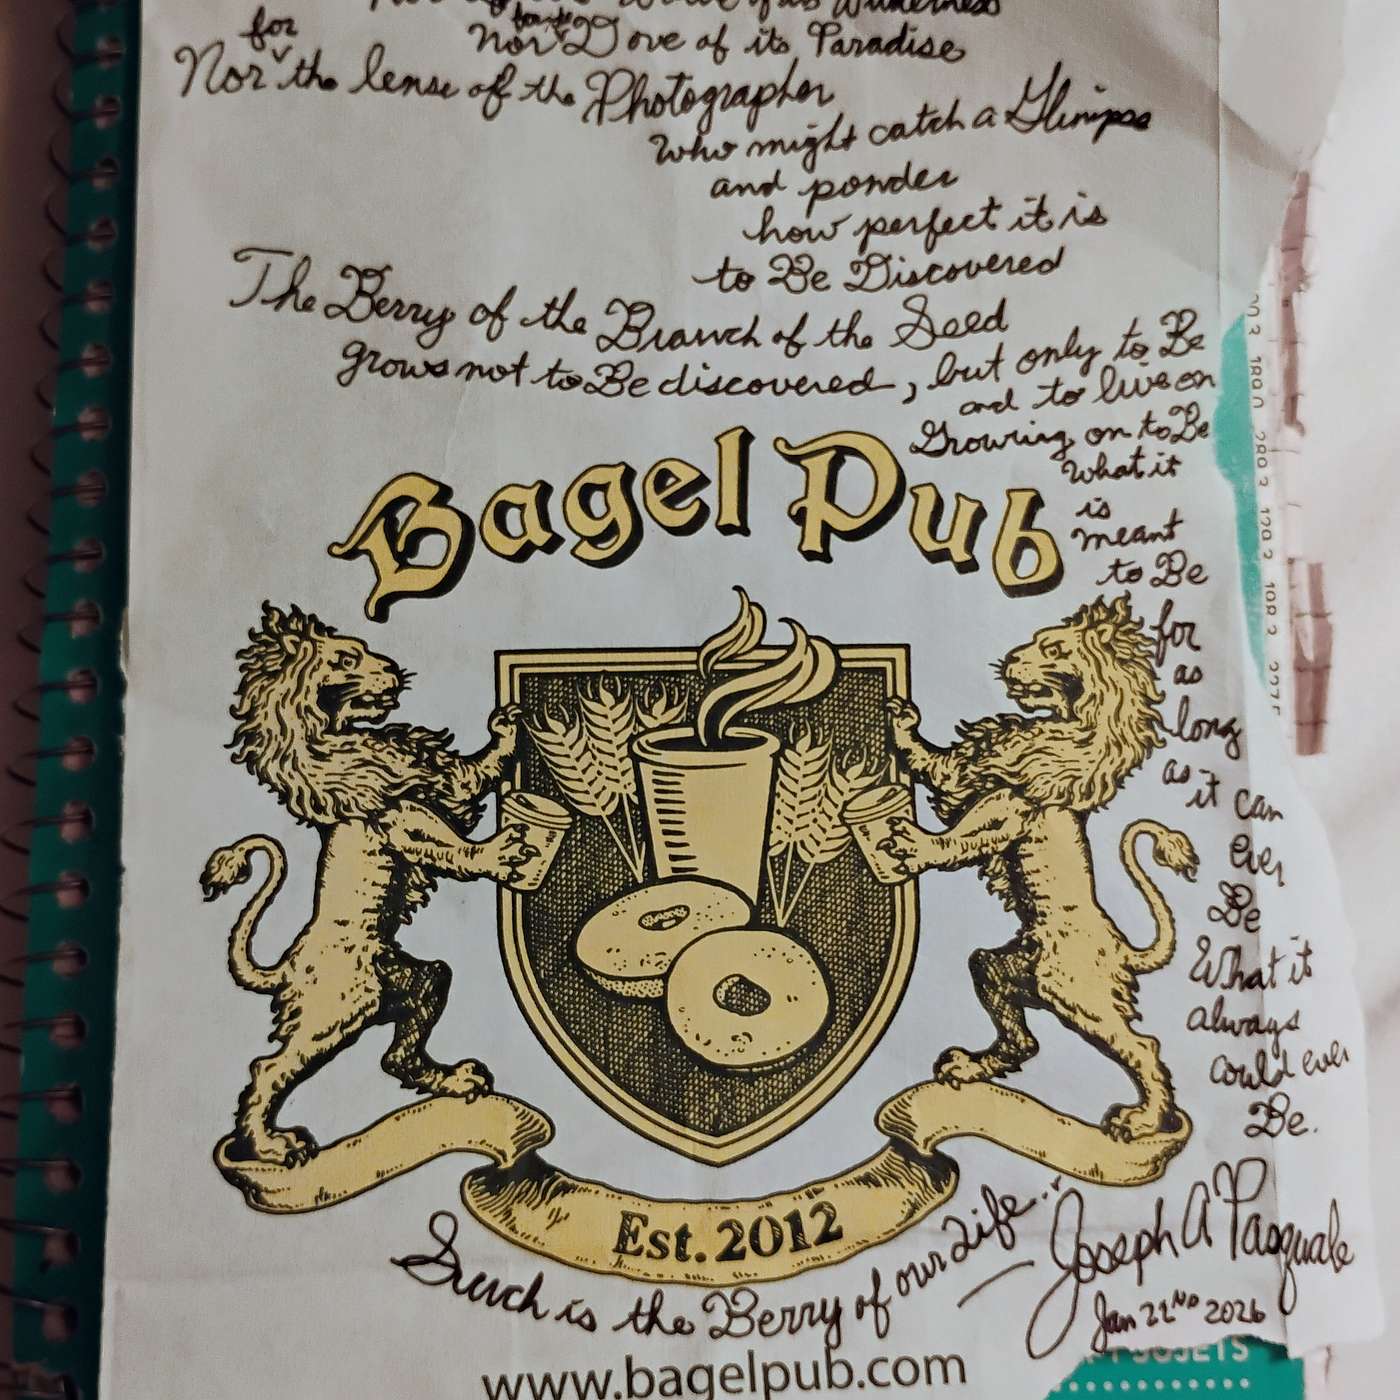 Wilderness
for
nor Dove of its Paradise
Nor the lense of the Photographer
who might catch a Glimpse
and ponder
how perfect it is
to Be Discovered
The Berry of the Branch of the Seed
grows not to Be discovered, but only to Be
and to live on
Growing on to Be
what it
is
meant
to Be
for
as
long
as
it can
ever
Be
What it
always
could ever
Be.
Bagel Pub
Est. 2012
Such is the Berry of our Life...
— Joseph A Pasquale
Jan 22ND 2026
www.bagelpub.com